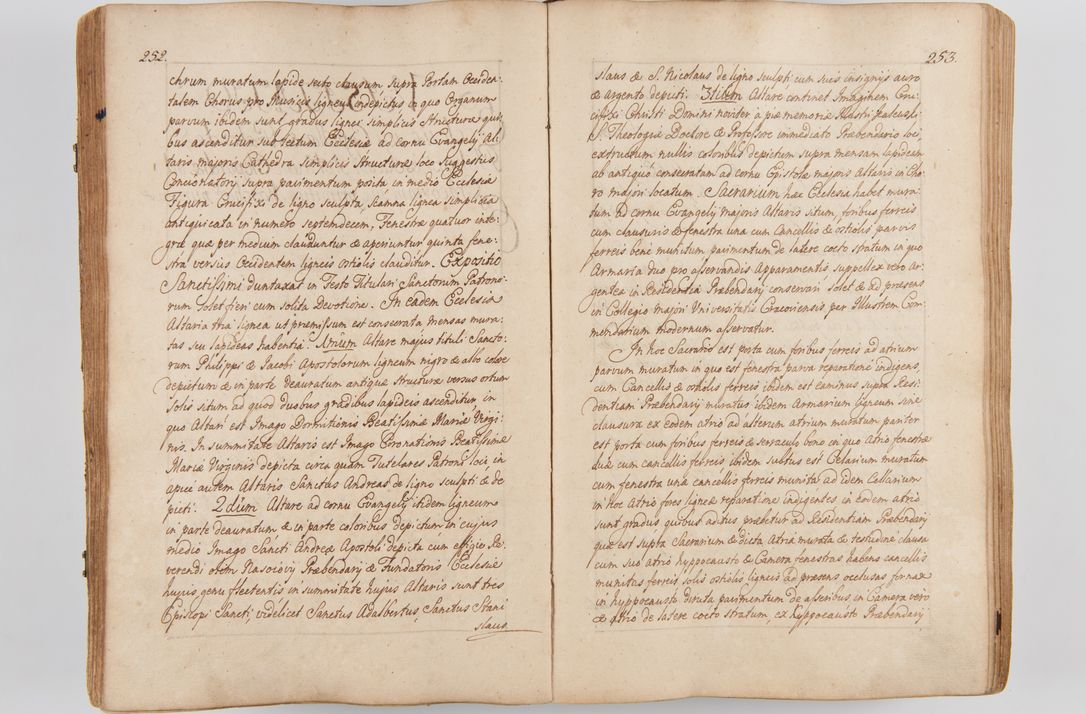 252.
chrum muratum lapide secto clausum supra Portam Occiden-
talem Chorus pro Musicis ligneus indepictus in quo Organum
parvum ibidem sunt gradus lignei simplicis Structuræ qui-
bus ascenditur sub tectum Ecclesiæ ad cornu Evangelij Al-
taris majoris Cathedra simplicis Structuræ loco Suggestus
Concionatorij supra pavimentum posita in medio Ecclesiæ
Figura Crucifixi de ligno sculpta scamna lignea simplicia
antiquicata in numero septemdecem, Fenestræ quatuor inte-
græ quæ per medium clauduntur & aperiuntur quinta fene-
stra versus Occidentem ligneis ostiolis clauditur. Expositio
Sanctissimi duntaxat in Festo Titulari Sanctorum Patrono-
rum solet fieri cum solita Devotione. In eadem Ecclesia
Altaria tria lignea ut præmissum est consecrata mensas mura-
tas seu lapideas habentia. Unum Altare majus tituli Sancto-
rum Philippi & Jacobi Apostolorum ligneum nigro & albo colore
depictum & in parte deauratum antiquæ Structuræ versus ortum
solis situm ad quod duobus gradibus lapideis ascenditur, in
quo Altari est Imago Dormitionis Beatissimæ Mariæ Virgi-
nis. In summitate Altaris est Imago Coronationis Beatissimæ
Mariæ Virginis depicta circa quam Tutelares Patroni loci, in
apice autem Altaris Sanctus Andreas de ligno sculpti & de-
picti. 2dum Altare ad cornu Evangelij itidem ligneum
in parte deauratum & in parte coloribus depictum in cujus
medio Imago Sancti Andreæ Apostoli depicta cum effigie Re-
verendi olim Præbendarij & Fundatoris Ecclesiæ
hujus genu flectentis in summitate hujus Altaris sunt tres
Episcopi Sancti, videlicet Sanctus Adalbertus, Sanctus Stani
slaus
253.
slaus & S. Nicolaus de ligno sculpti cum suis insignijs auro
& argento depicti. 3tium Altare continet Imaginem Cru-
cifixi Christi Domini noviter a piæ memoriæ
S. Theologiæ Doctore & Profesore immediato Præbendario loci
extructum nullis coloribus depictum supra mensam lapideam
ab antiquo consecratam ad cornu Epistolæ majoris Altaris in Cho-
ro majori locatum. Sacrarium hæc Ecclesia habet mura-
tum ad cornu Evangelij majoris Altaris situm, foribus ferreis
cum clausuris & fenestra una cum Cancellis & ostiolis parvis
ferreis bene munitum pavimentum de latere cocto stratum in quo
Armaria duo pro asservandis Apparamentis suppellex vero Ar-
gentea in Residentia Præbendarij conservari solet & ad præsens
in Collegio majori Universitatis Cracoviensis per Illustrem Com-
mendarium modernum asservatur.
In hoc Sacrario est porta cum foribus ferreis ad atrium
parvum muratum in quo est fenestra parva reparatione indigens,
cum Cancellis & ostiolis ferreis ibidem est caminus supra Resi-
dentiam Præbendarij muratus ibidem Armarium ligneum sine
clausura ex eodem atrio ad alterum atrium muratum pariter
est porta cum foribus ferreis & serraculo bono in quo Atrio fenestræ
duæ cum cancellis ferreis ibidem subtus est Celarium muratum
cum fenestra una cancellis ferreis munita ad idem Cellarium
in hoc Atrio fores ligneæ reparatione indigentes in eodem atrio
sunt gradus quibus aditus præbetur ad Residentiam Præbendarij
quæ est supra Sacrarium & dicta Atria murata & testudine clausa
cum suo atrio hyppocausto & Camera fenestras habens cancellis
munitas ferreis solis ostiolis ligneis ad præsens occlusas fornax
in hyppocausto diruta pavimentum de asseribus in Camera vero
& Atrio de latere cocto stratum, ex hyppocausto Præbendarij